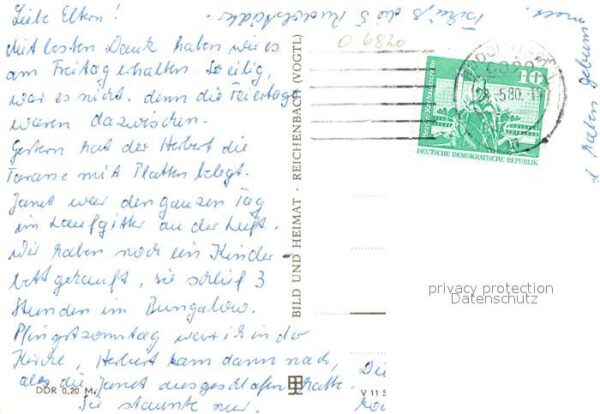 Liebe Eltern!
Mit besten Dank haben wir es
am Freitag erhalten. So eilig,
war es nicht. denn die Feiertage
waren dazwischen.
Gestern hat der Herbert die
Terasse mit Platten belegt.
Janet war den ganzen Tag
im Laufgitter an der Luft.
Wir haben noch ein Kinder-
bett gekauft, sie schlief 3
Stunden im Bungalow.
Pfingstsonntag war ich in der
Kirche, Herbert kam dann nach,
als die Janet ausgeschlafen hatte.
Sie staunte nur.
DDR 0,20 M
BILD UND HEIMAT · REICHENBACH (VOGTL)
V 11 5
O 6820
10
DEUTSCHE DEMOKRATISCHE REPUBLIK
.5.80.
privacy protection
Datenschutz
haben